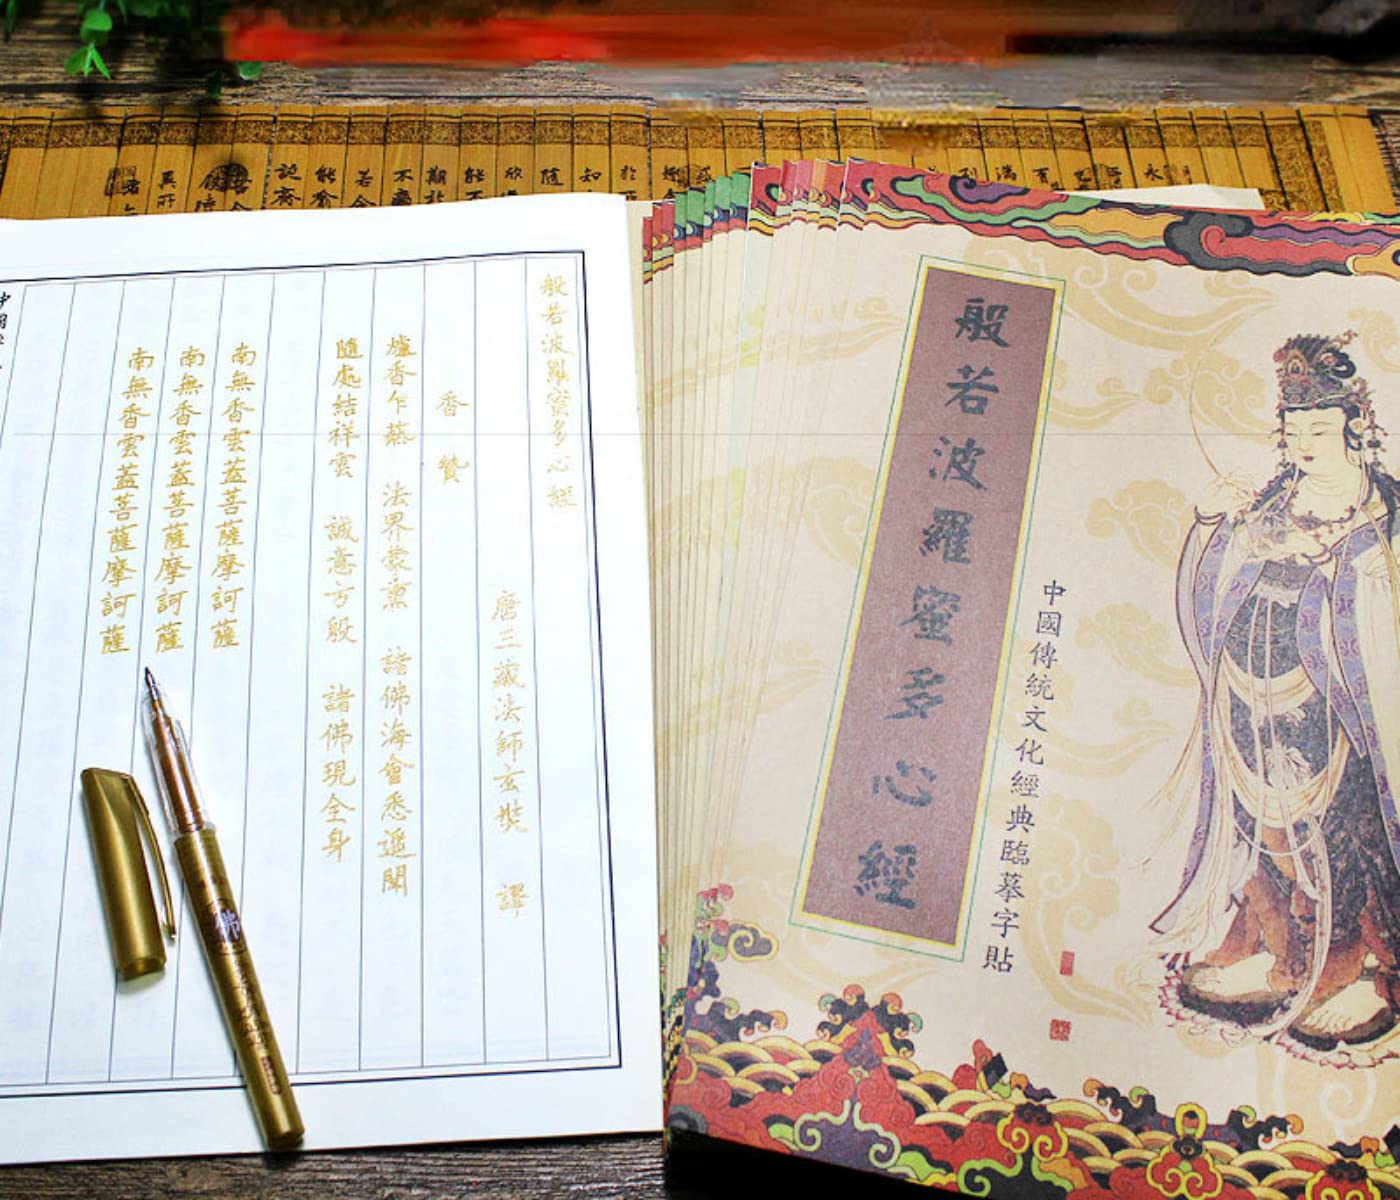 般若波羅蜜多心經
唐三藏法師玄奘 譯
香 贊
爐香乍爇 法界蒙熏 諸佛海會悉遥聞
隨處結祥雲 誠意方殷 諸佛現全身
南無香雲蓋菩薩摩訶薩
南無香雲蓋菩薩摩訶薩
南無香雲蓋菩薩摩訶薩
般若波羅蜜多心經
中國傳統文化經典臨摹字貼
佛